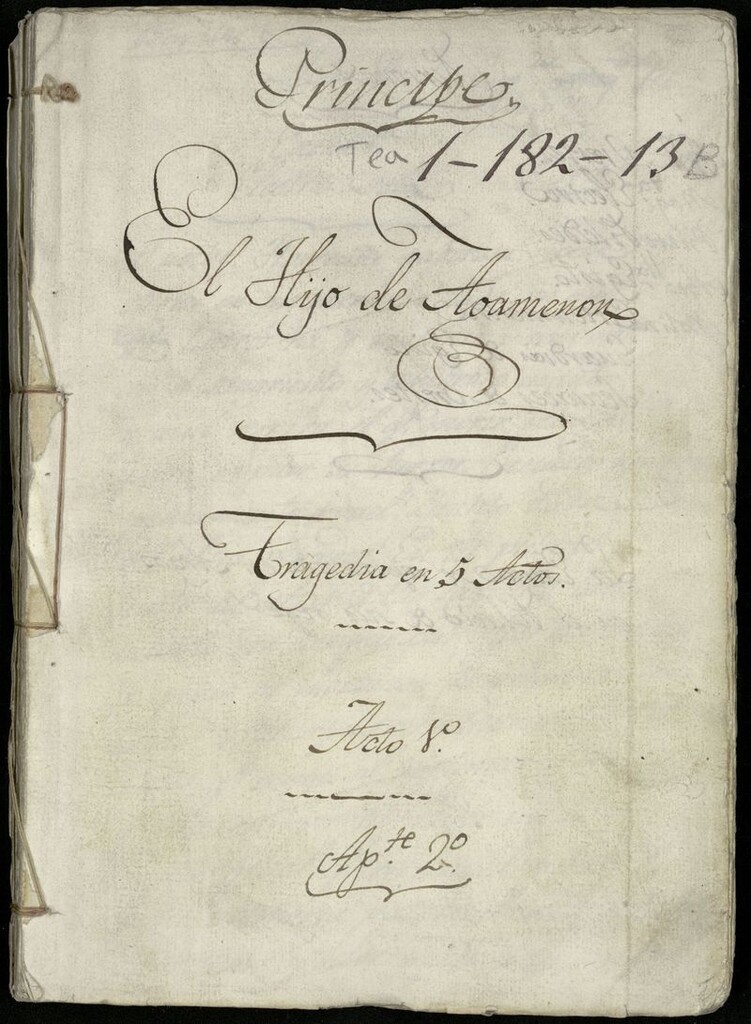 Principe.
Tea 1-182-13 B
El Hijo de Agamenon
Tragedia en 5 Actos.
Acto 1º.
Ap.te 2º